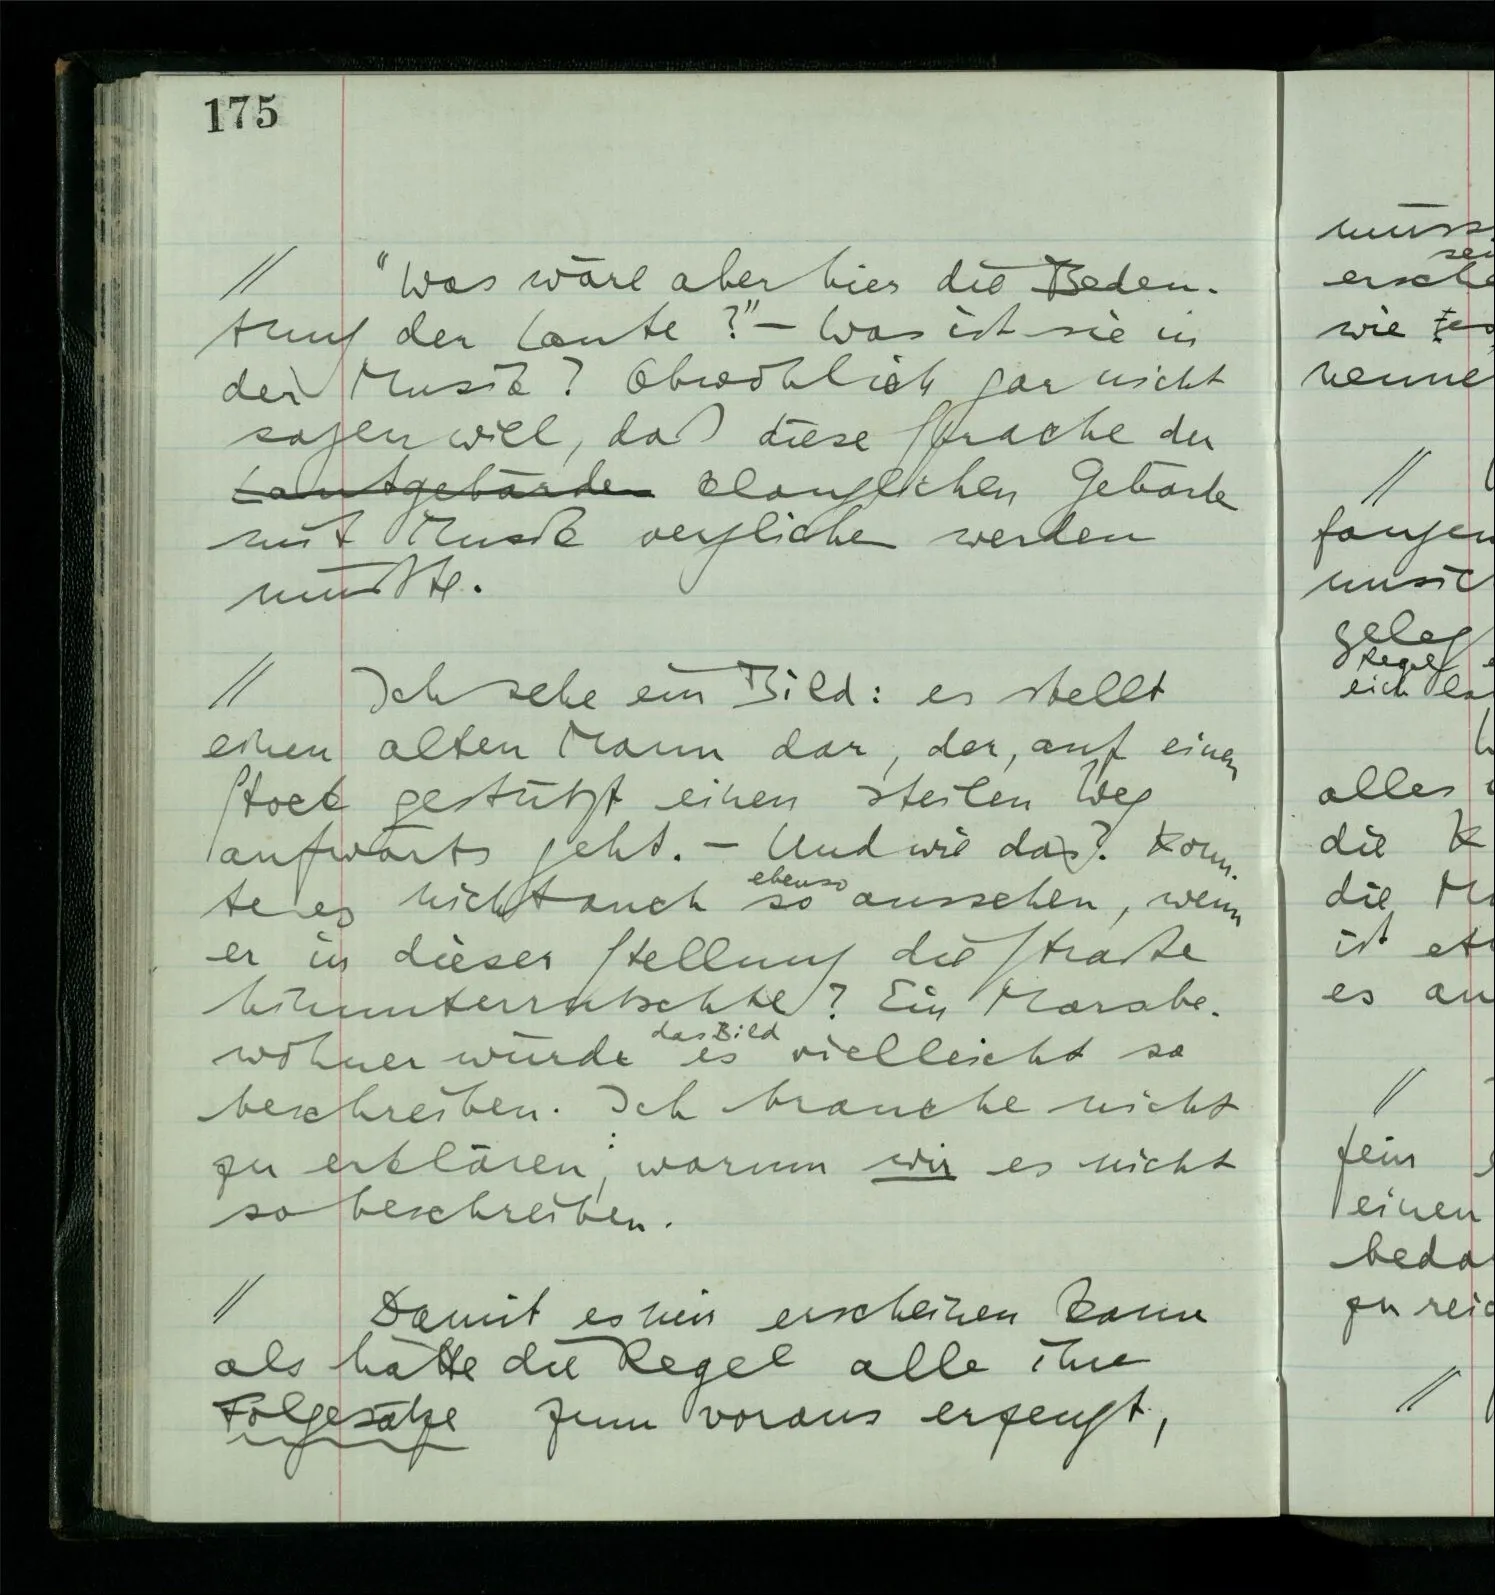 175
// "Was wäre aber hier die Bedeu-
tung der Laute?" – Was ist sie in
der Musik? Obwohl ich gar nicht
sagen will, daß diese Sprache der
Lautgebärden klanglichen Gebärde
mit Musik verglichen werden
müßte.
// Ich sehe ein Bild: es stellt
einen alten Mann dar, der, auf einen
Stock gestützt einen steilen Weg
aufwärts geht. – Und wie das? Konn-
te es nicht auch so aussehen, wenn
ebenso
er in dieser Stellung die Straße
hinunterrutschte? Ein Marsbe-
wohner würde es vielleicht so
das Bild
beschreiben. Ich brauche nicht
zu erklären, warum wir es nicht
so beschreiben.
// Damit es mir erscheinen kann
als hätte die Regel alle ihre
Folgesätze zum voraus erzeugt,
wie
nenne
//
fangen
musik
geleg
Regel
alles
die K
die
ist
es
//
einen
beda
//